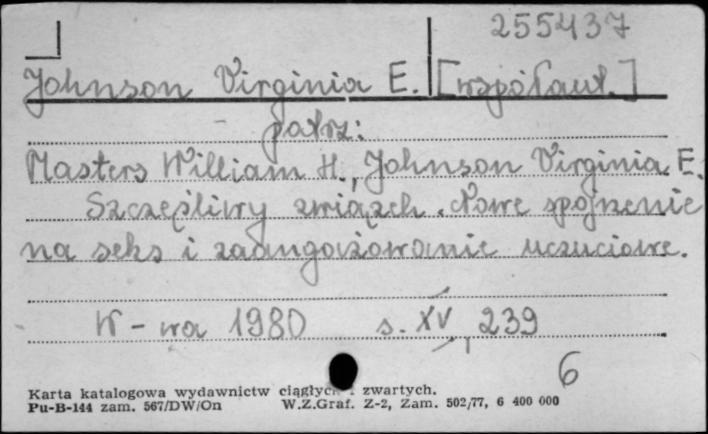 255437
Johnson Virginia E. [współaut.]
patrz:
Masters William H., Johnson Virginia E.
Szczęśliwy związek. Nowe spojrzenie
na seks i zaangażowanie uczuciowe.
W-wa 1980 s. XV, 239
6
Karta katalogowa wydawnictw ciągłych i zwartych.
Pu-B-144 zam. 567/DW/On W.Z.Graf. Z-2, Zam. 502/77, 6 400 000